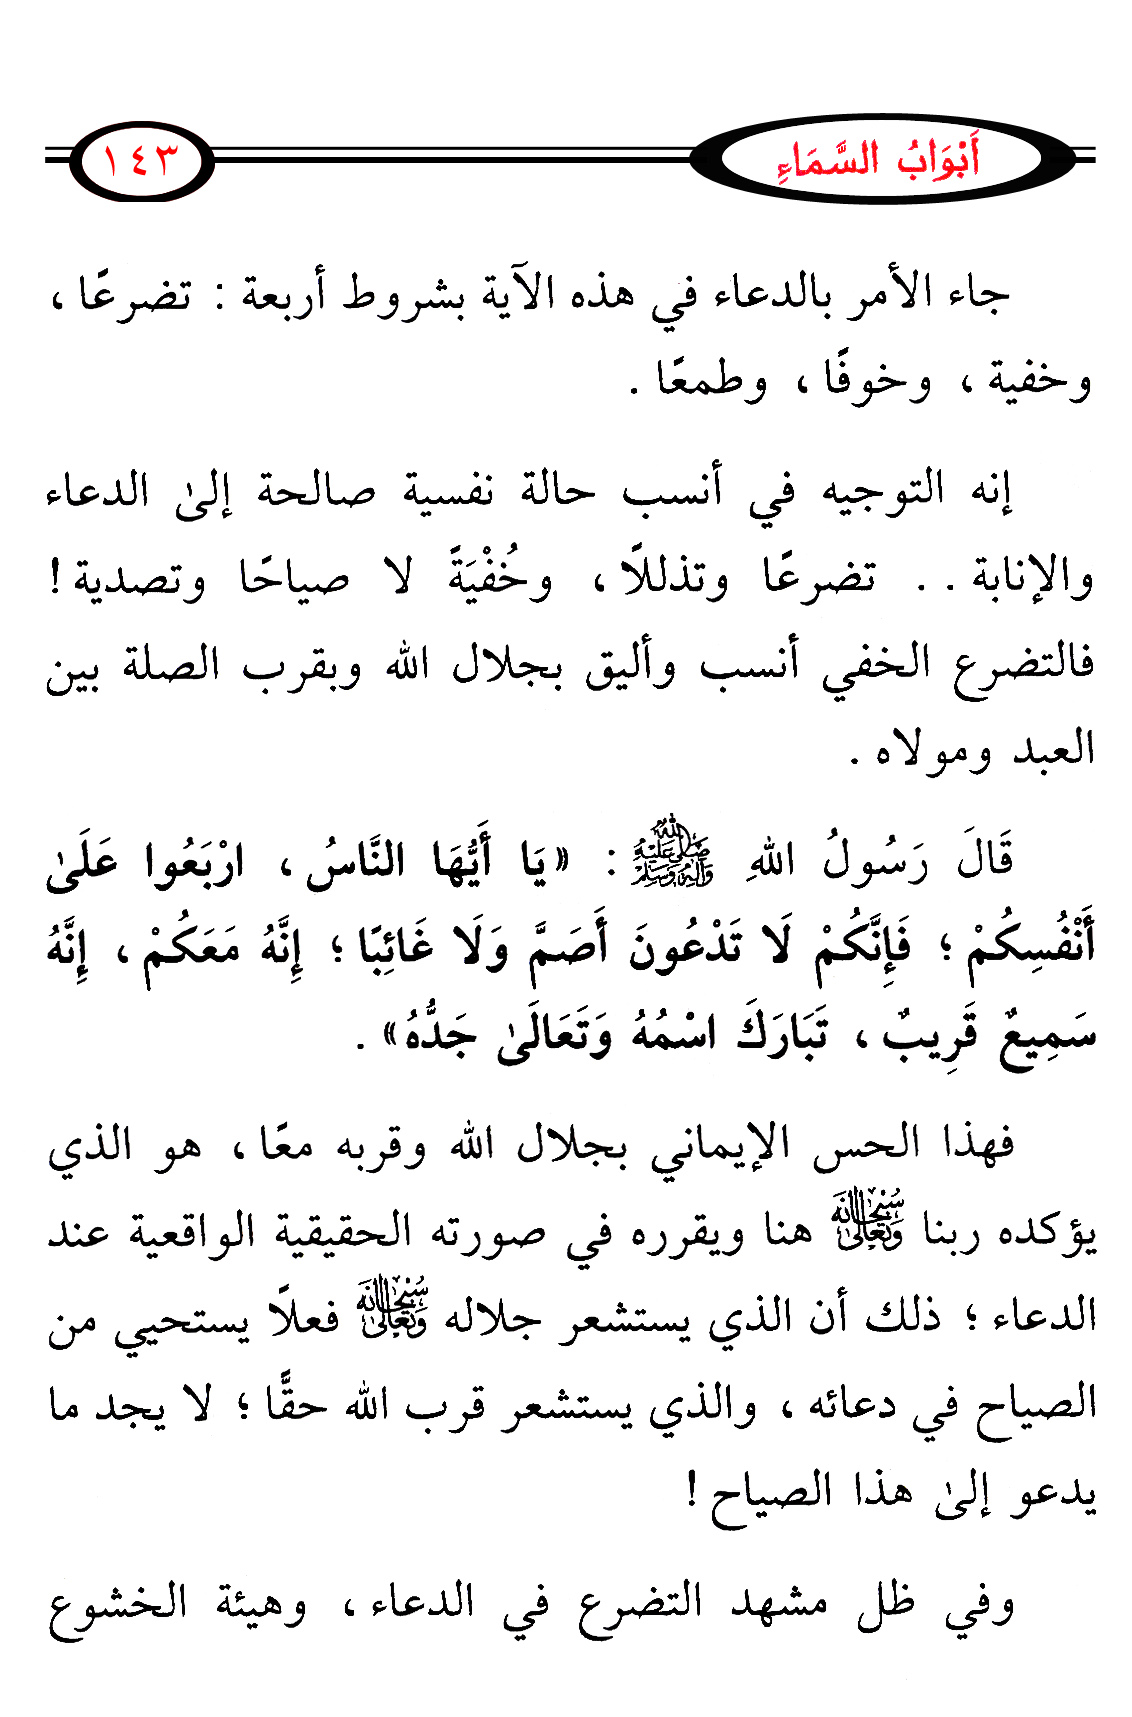 أَبْوَابُ السَّمَاءِ
١٤٣
جاء الأمر بالدعاء في هذه الآية بشروط أربعة : تضرعًا ،
وخفية ، وخوفًا ، وطمعًا .
إنه التوجيه في أنسب حالة نفسية صالحة إلىٰ الدعاء
والإنابة . . تضرعًا وتذللًا ، وخُفْيَةً لا صياحًا وتصدية !
فالتضرع الخفي أنسب وأليق بجلال الله وبقرب الصلة بين
العبد ومولاه .
قَالَ رَسُولُ اللهِ صَلَّى اللهُ عَلَيْهِ وَآلِهِ وَسَلَّمَ : «يَا أَيُّهَا النَّاسُ ، ارْبَعُوا عَلَىٰ
أَنْفُسِكُمْ ؛ فَإِنَّكُمْ لَا تَدْعُونَ أَصَمَّ وَلَا غَائِبًا ؛ إِنَّهُ مَعَكُمْ ، إِنَّهُ
سَمِيعٌ قَرِيبٌ ، تَبَارَكَ اسْمُهُ وَتَعَالَىٰ جَدُّهُ» .
فهذا الحس الإيماني بجلال الله وقربه معًا ، هو الذي
يؤكده ربنا سُبْحَانَهُ وَتَعَالَىٰ هنا ويقرره في صورته الحقيقية الواقعية عند
الدعاء ؛ ذلك أن الذي يستشعر جلاله سُبْحَانَهُ وَتَعَالَىٰ فعلًا يستحيي من
الصياح في دعائه ، والذي يستشعر قرب الله حقًّا ؛ لا يجد ما
يدعو إلىٰ هذا الصياح !
وفي ظل مشهد التضرع في الدعاء ، وهيئة الخشوع